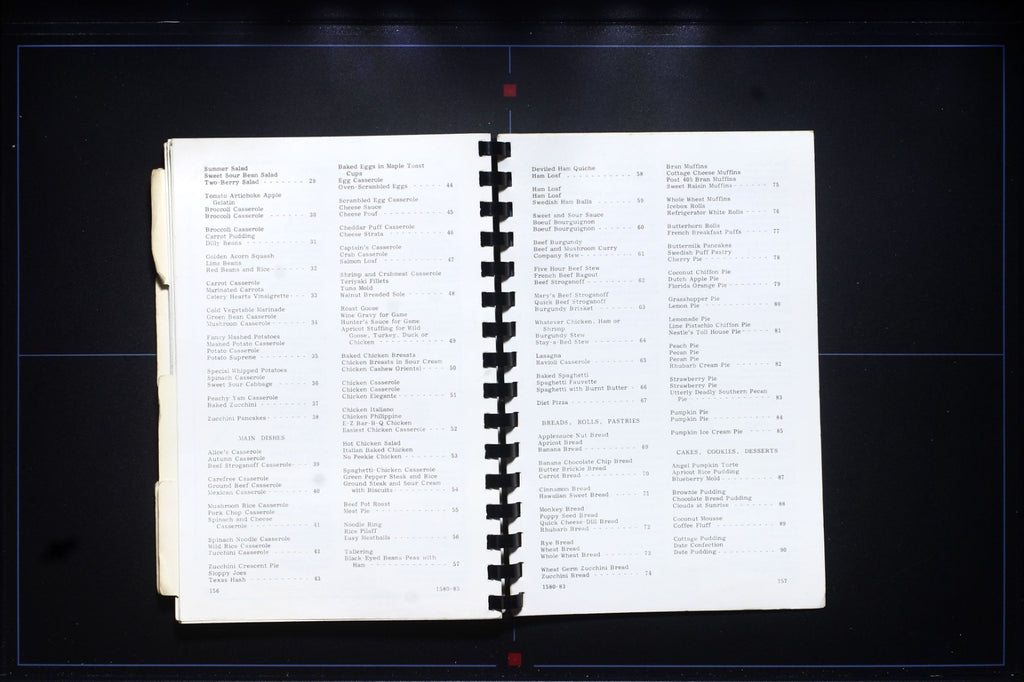 Summer Salad
Sweet Sour Bean Salad
Two-Berry Salad - - - - - - - - 29
Tomato Artichoke Apple
Gelatin
Broccoli Casserole
Broccoli Casserole - - - - - - - 30
Broccoli Casserole
Carrot Pudding
Dilly Beans - - - - - - - - - - 31
Golden Acorn Squash
Lima Beans
Red Beans and Rice - - - - - - - 32
Carrot Casserole
Marinated Carrots
Celery Hearts Vinaigrette - - - - 33
Cold Vegetable Marinade
Green Bean Casserole
Mushroom Casserole - - - - - - - 34
Fancy Mashed Potatoes
Mashed Potato Casserole
Potato Casserole
Potato Supreme - - - - - - - - - 35
Special Whipped Potatoes
Spinach Casserole
Sweet Sour Cabbage - - - - - - - 36
Peachy Yam Casserole
Baked Zucchini - - - - - - - - - 37
Zucchini Pancakes - - - - - - - - 38
MAIN DISHES
Alice's Casserole
Autumn Casserole
Beef Stroganoff Casserole - - - - 39
Carefree Casserole
Ground Beef Casserole
Mexican Casserole - - - - - - - - 40
Mushroom Rice Casserole
Pork Chop Casserole
Spinach and Cheese
Casserole - - - - - - - - - - 41
Spinach Noodle Casserole
Wild Rice Casserole
Zucchini Casserole - - - - - - - 42
Zucchini Crescent Pie
Sloppy Joes
Texas Hash - - - - - - - - - - 43
156
Baked Eggs in Maple Toast
Cups
Egg Casserole
Oven-Scrambled Eggs - - - - - - 44
Scrambled Egg Casserole
Cheese Sauce
Cheese Pouf - - - - - - - - - - 45
Cheddar Puff Casserole
Cheese Strata - - - - - - - - - 46
Captain's Casserole
Crab Casserole
Salmon Loaf - - - - - - - - - - 47
Shrimp and Crabmeat Casserole
Teriyaki Fillets
Tuna Mold
Walnut Breaded Sole - - - - - - 48
Roast Goose
Wine Gravy for Game
Hunter's Sauce for Game
Apricot Stuffing for Wild
Goose, Turkey, Duck or
Chicken - - - - - - - - - - - 49
Baked Chicken Breasts
Chicken Breasts in Sour Cream
Chicken Cashew Oriental - - - - 50
Chicken Casserole
Chicken Casserole
Chicken Elegante - - - - - - - - 51
Chicken Italiano
Chicken Philippine
E-Z Bar-B-Q Chicken
Easiest Chicken Casserole - - - 52
Hot Chicken Salad
Italian Baked Chicken
No Peekie Chicken - - - - - - - 53
Spaghetti-Chicken Casserole
Green Pepper Steak and Rice
Ground Steak and Sour Cream
with Biscuits - - - - - - - - 54
Beef Pot Roast
Meat Pie - - - - - - - - - - - 55
Noodle Ring
Rice Pilaff
Easy Meatballs - - - - - - - - - 56
Black-Eyed Beans-Peas with
Ham - - - - - - - - - - - - - 57
1580-83
Deviled Ham Quiche
Ham Loaf - - - - - - - - - - - 58
Ham Loaf
Ham Loaf
Swedish Ham Balls - - - - - - - 59
Sweet and Sour Sauce
Boeuf Bourguignon
Boeuf Bourguignon - - - - - - - 60
Beef Burgundy
Beef and Mushroom Curry
Company Stew - - - - - - - - - 61
Five Hour Beef Stew
French Beef Ragout
Beef Stroganoff - - - - - - - - 62
Mary's Beef Stroganoff
Quick Beef Stroganoff
Burgundy Brisket - - - - - - - - 63
Whatever Chicken, Ham or
Shrimp
Burgundy Stew
Stay-a-Bed Stew - - - - - - - - 64
Lasagna
Ravioli Casserole - - - - - - - 65
Baked Spaghetti
Spaghetti Fauvette
Spaghetti with Burnt Butter - - 66
Diet Pizza - - - - - - - - - - 67
BREADS, ROLLS, PASTRIES
Applesauce Nut Bread
Apricot Bread
Banana Bread - - - - - - - - - 69
Banana Chocolate Chip Bread
Butter Brickle Bread
Carrot Bread - - - - - - - - - 70
Cinnamon Bread
Hawaiian Sweet Bread - - - - - - 71
Monkey Bread
Poppy Seed Bread
Quick Cheese-Dill Bread
Rhubarb Bread - - - - - - - - - 72
Rye Bread
Wheat Bread
Whole Wheat Bread - - - - - - - 73
Wheat Germ Zucchini Bread
Zucchini Bread - - - - - - - - - 74
1580-83
Bran Muffins
Cottage Cheese Muffins
Post 40% Bran Muffins
Sweet Raisin Muffins - - - - - - 75
Whole Wheat Muffins
Icebox Rolls
Refrigerator White Rolls - - - - 76
Butterhorn Rolls
French Breakfast Puffs - - - - - 77
Buttermilk Pancakes
Swedish Puff Pastry
Cherry Pie - - - - - - - - - - 78
Coconut Chiffon Pie
Dutch Apple Pie
Florida Orange Pie - - - - - - - 79
Grasshopper Pie
Lemon Pie - - - - - - - - - - - 80
Lemonade Pie
Lime Pistachio Chiffon Pie
Nestle's Toll House Pie - - - - 81
Peach Pie
Pecan Pie
Pecan Pie
Rhubarb Cream Pie - - - - - - - 82
Strawberry Pie
Strawberry Pie
Utterly Deadly Southern Pecan
Pie - - - - - - - - - - - - - 83
Pumpkin Pie
Pumpkin Pie - - - - - - - - - - 84
Pumpkin Ice Cream Pie - - - - - 85
CAKES, COOKIES, DESSERTS
Angel Pumpkin Torte
Apricot Rice Pudding
Blueberry Mold - - - - - - - - - 87
Brownie Pudding
Chocolate Bread Pudding
Clouds at Sunrise - - - - - - - 88
Coconut Mousse
Coffee Fluff - - - - - - - - - - 89
Cottage Pudding
Date Confection
Date Pudding - - - - - - - - - - 90
157